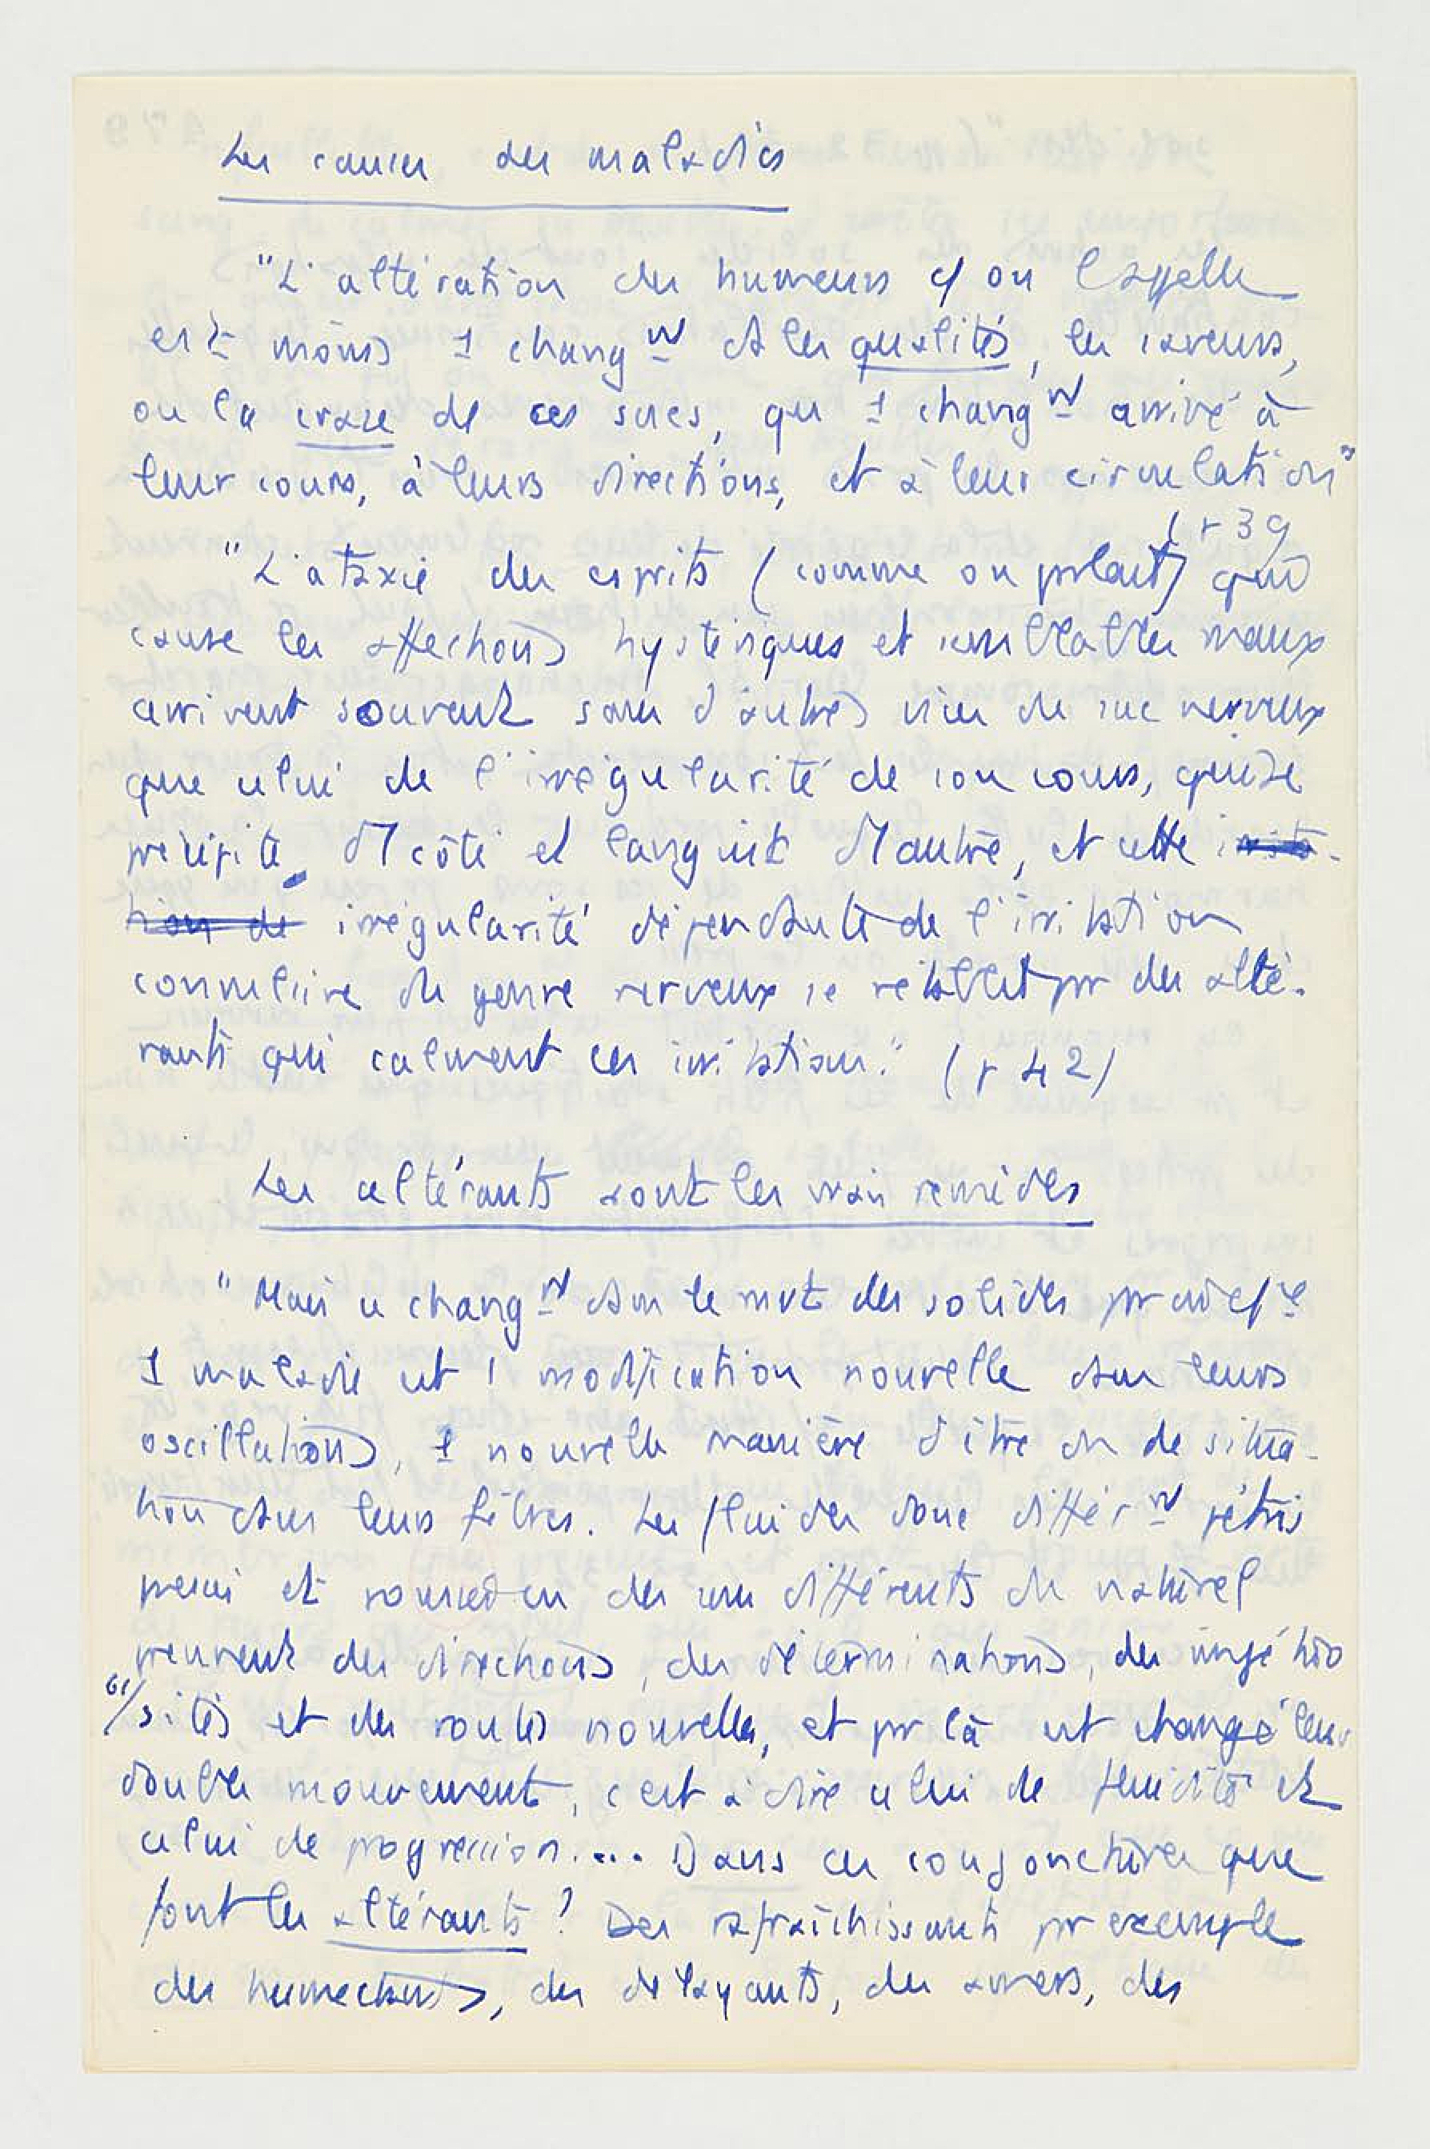 Les causes des maladies
"L'altération des humeurs c/ on l'appelle
est moins 1 chang nt ds les qualités, les saveurs,
ou la crase de ces sucs, qu 1 chang nt arrivé à
leur cours, à leurs directions, et à leur circulation"
(p 39
"L'ataxie des esprits (comme on parlait) qui
cause les affections hystériques et semblables maux
arrivent souvent sans d'autres vices du suc nerveux
que celui de l'irrégularité de son cours, qui se
précipite d'1 côté et languit d'1 autre, et cette
irrégularité dépendante de l'irritation
convulsive du genre nerveux se rétablit pr des alté-
rants qui calment ces irritations." (p 42)
Les altérants sont les vrais remèdes
"Mais ce chang nt dans le mvt des solides pr
1 maladie est 1 modification nouvelle dans leurs
oscillations, 1 nouvelle manière d'être ou de situa-
tion dans leurs fibres. Les fluides donc différ nt pétris
pressés et des sens différents du naturel
prennent des directions, des déterminations, des impétuo
sités et des routes nouvelles, et pr là est changé leur
double mouvement, c'est à dire celui de fluidité et
celui de progression.... Dans ces conjonctures que
font les altérants? Des rafraîchissants pr exemple
des humectants, des délayants, des amers, des